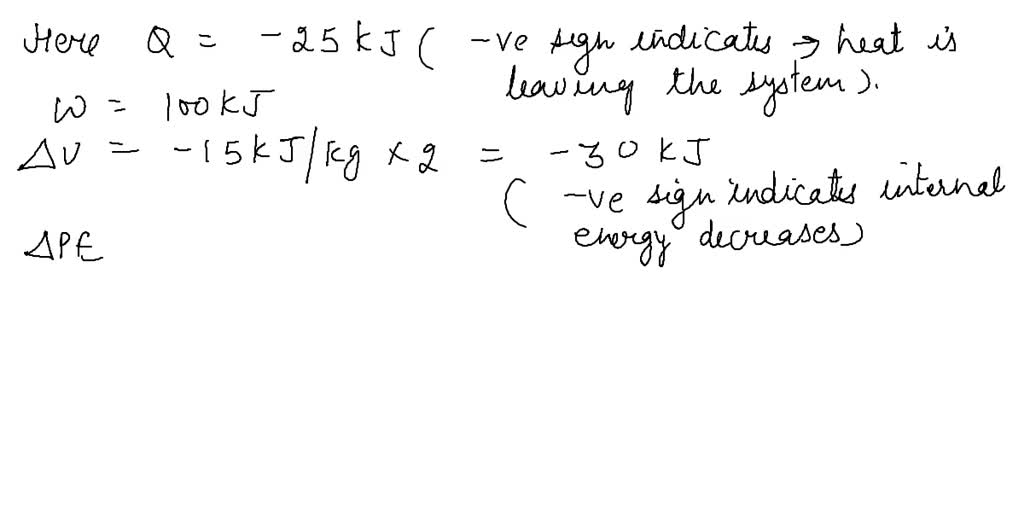 Here Q = -25 kJ ( -ve sign indicates → heat is
leaving the system).
W = 100 kJ
ΔU = -15 kJ/kg × 2 = -30 kJ
( -ve sign indicates internal
energy decreases)
ΔPE